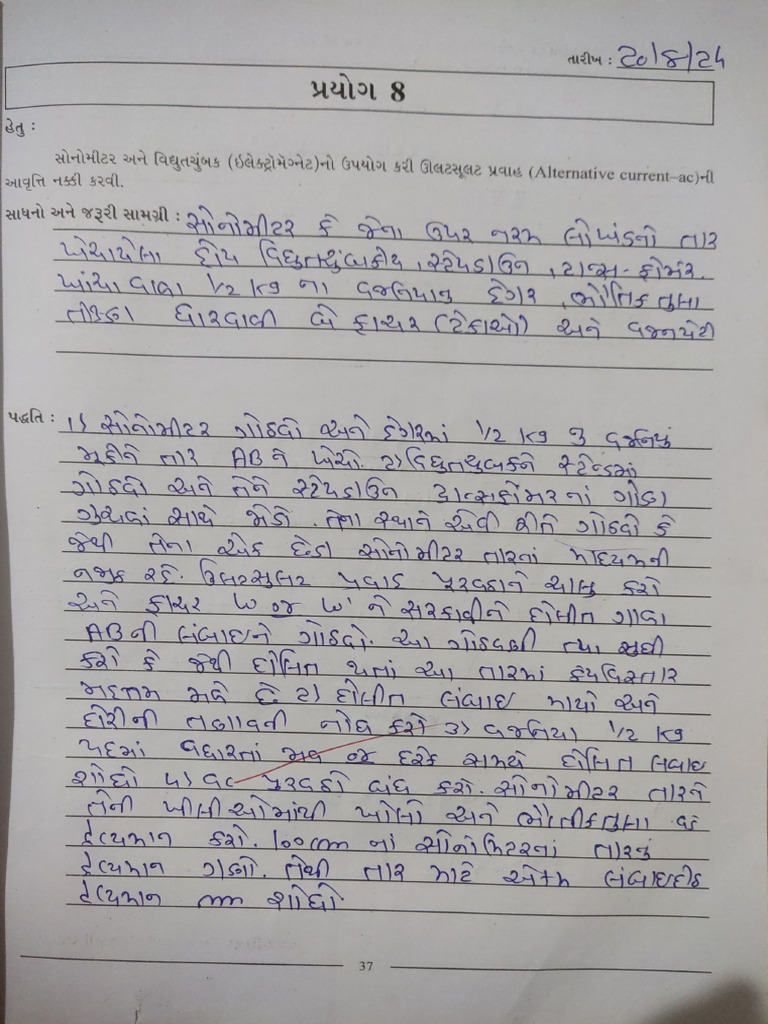 તારીખ : ૨૦/૪/૨૫
પ્રયોગ 8
હેતુ :
સોનોમીટર અને વિદ્યુતચુંબક (ઇલેક્ટ્રોમેગ્નેટ)નો ઉપયોગ કરી ઊલટસૂલટ પ્રવાહ (Alternative current–ac)ની
આવૃત્તિ નક્કી કરવી.
સાધનો અને જરૂરી સામગ્રી : સોનોમીટર કે જેના ઉપર નરમ લોખંડનો તાર
ખેચાયેલા હોય વિદ્યુતચુંબકીય, સ્ટેપડાઉન, ટ્રાન્સ-ફોર્મર.
ખાંચા વાળા 1/2 kg ના વજનિયાનુ હેંગર, ભૌતિક તુલા
તીક્ષ્ણ ધારવાળી બે ફાચર (ટેકાઓ) અને વજનપેટી
પદ્ધતિ : 1) સોનોમીટર ગોઠવો અને હેંગરમાં 1/2 kg નુ વજનિયું
મૂકીને તાર AB ને ખેચો. ૨) વિદ્યુતચુબકને સ્ટેન્ડમાં
ગોઠવો અને તેને સ્ટેપડાઉન ટ્રાન્સફોર્મરનાં ગૌણ
ગુંચળાં સાથે જોડો. તેના સ્થાને એવી રીતે ગોઠવો કે
જેથી તેના એક છેડા સોનોમીટર તારનાં માધ્યમની
નજીક રહે. ઉલટસુલટ પ્રવાહ પૂરવઠાને ચાલુ કરો
અને ફાચર W જ W' ને સરકાવીને દોલીત ગાળા
ABની લંબાઇને ગોઠવો. આ ગોઠવણી ત્યા સુધી
કરો કે જેથી દોલિત થતાં આ તારમાં કંપવિસ્તાર
મહત્તમ મળે છે ૨) દોલીત લંબાઇ માપો અને
દોરીની તણાવની નોંધ કરો 3) વજનિયા 1/2 kg
પદમાં વધારતાં જ દરેક સમયે દોલિત લંબાઇ
શોધો ૫) પૂરવઠો બંધ કરો. સોનોમીટર તારને
તેની ખીલીઓમાંથી ખોલો અને ભૌતીકતુલા વડે
દ્રવ્યમાન કરો. 100cm નાં સોનોમિટરનાં તારનું
દ્રવ્યમાન ગણો. તેથી તાર માટે એકમ લંબાઇદીઠ
દ્રવ્યમાન m શોધો
37